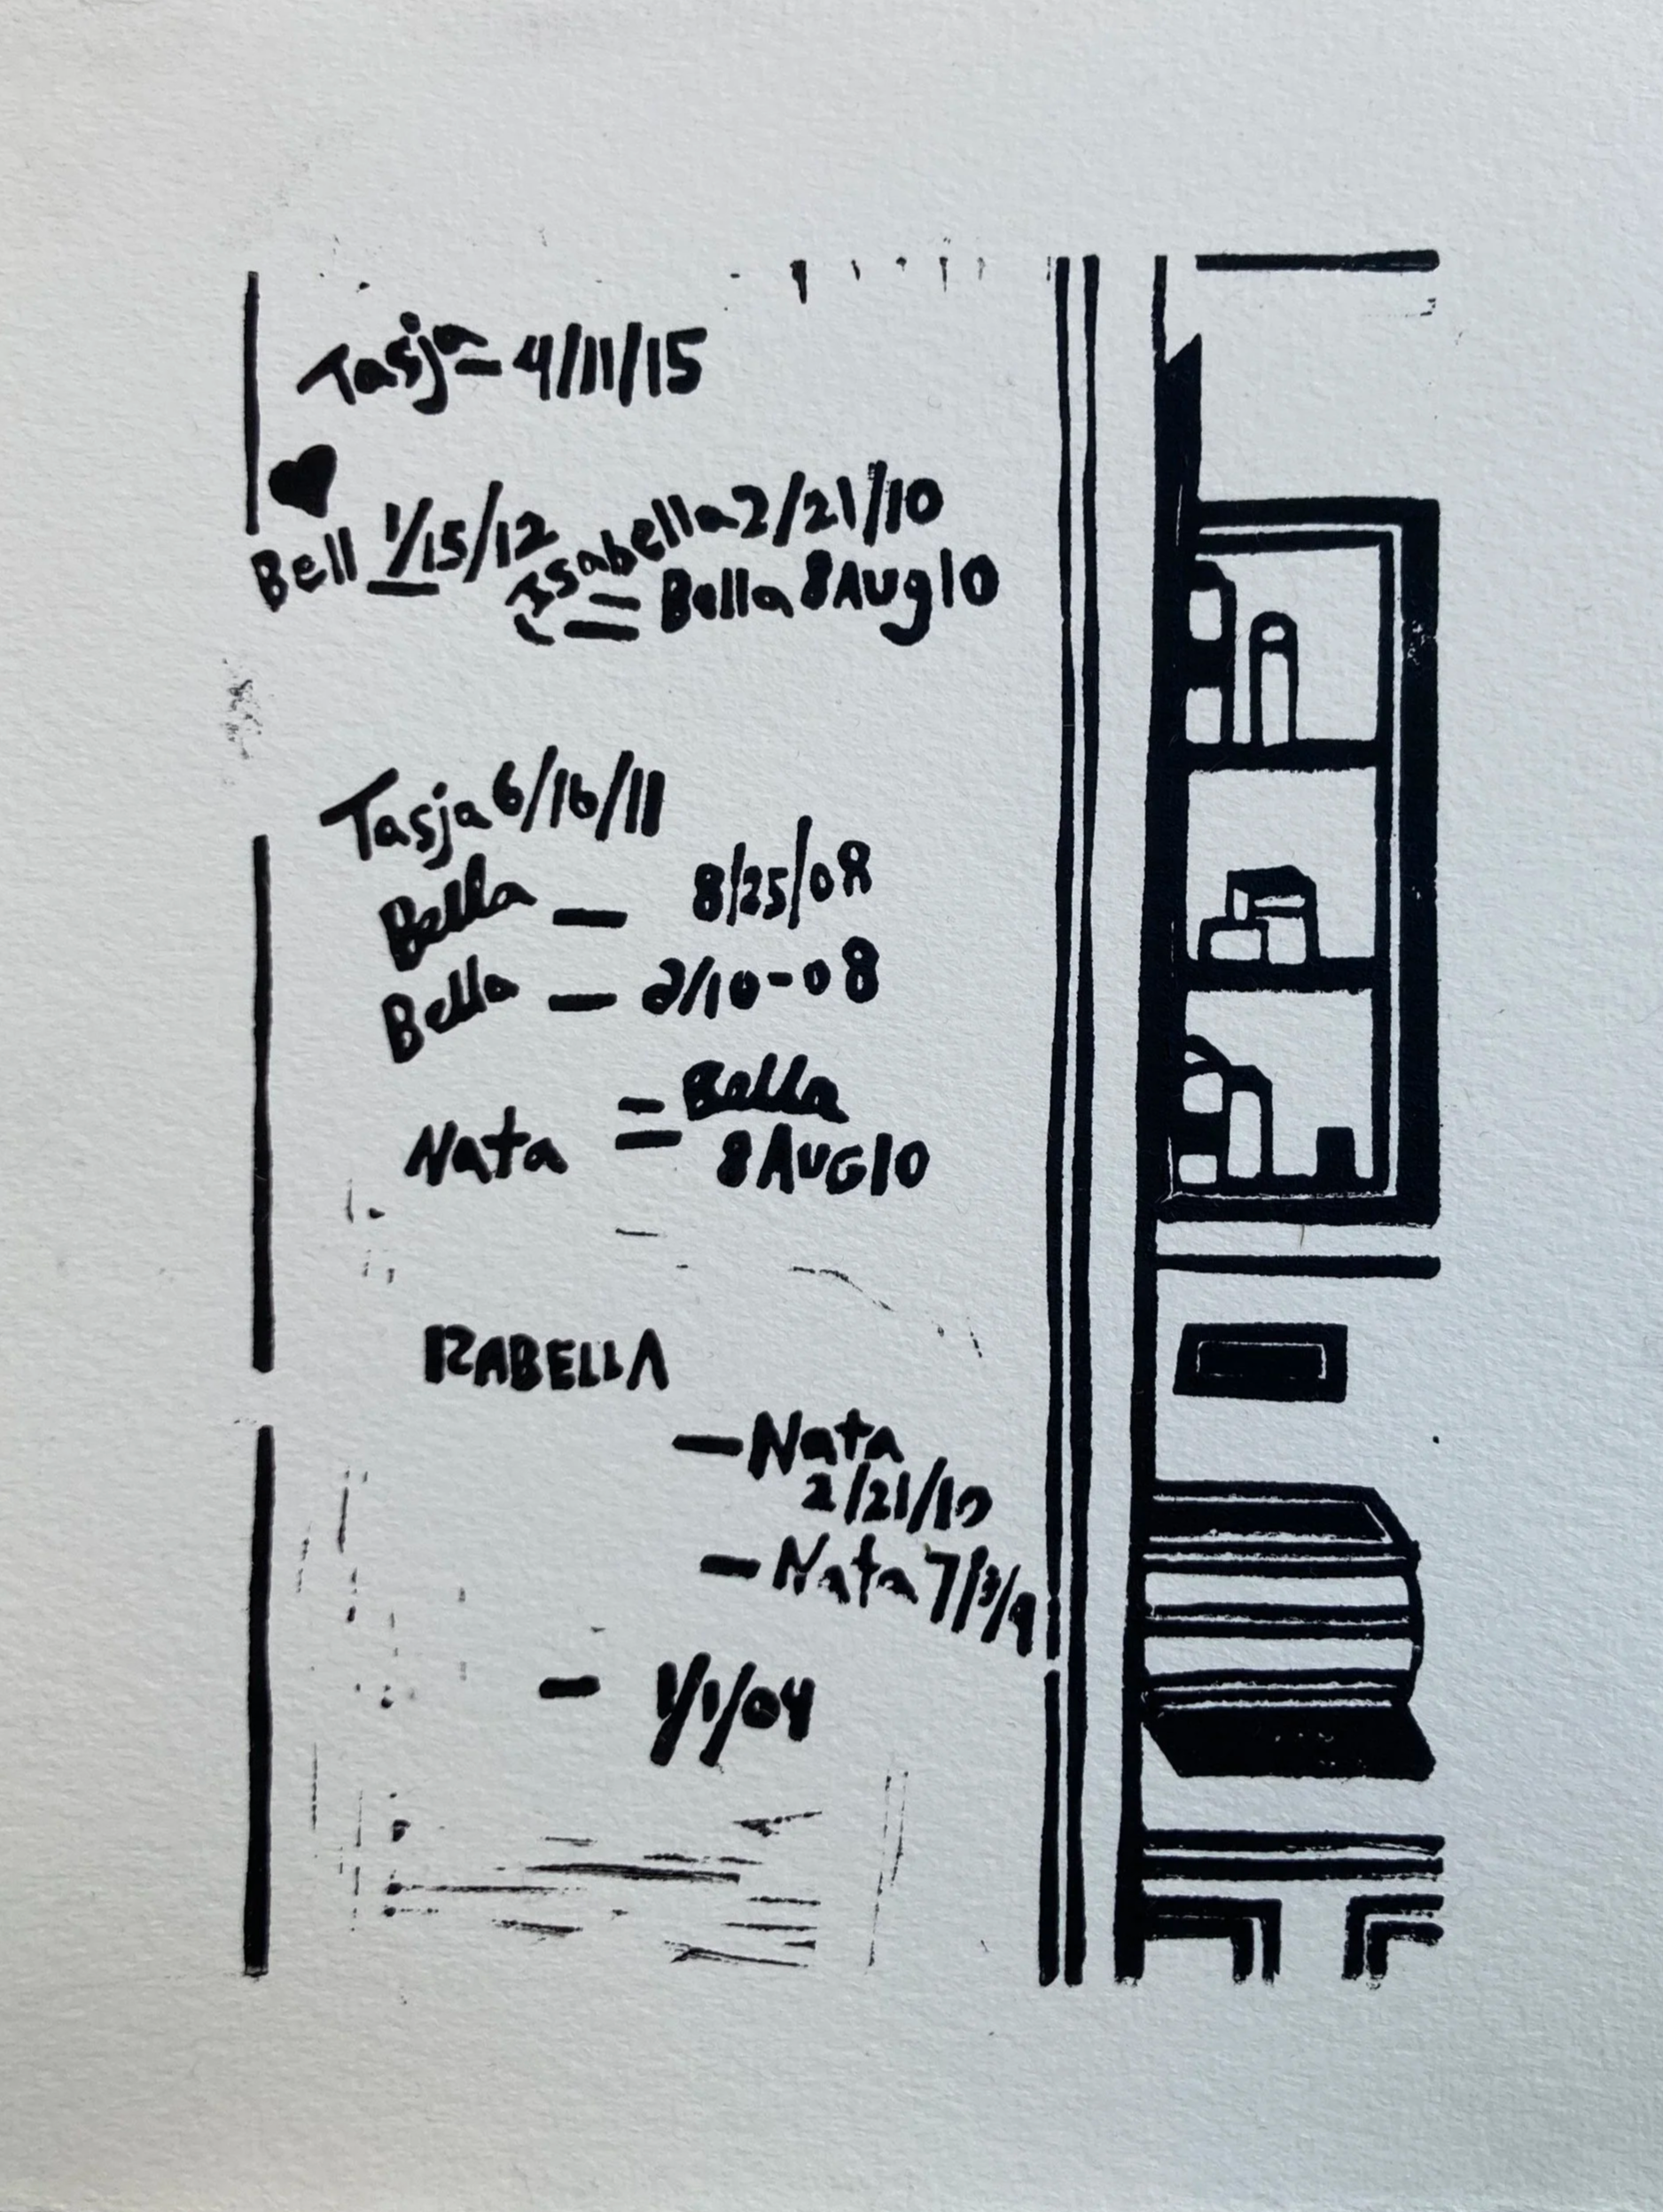 Tasja - 4/11/15
Bell 1/15/12
Isabella 2/21/10
Bella 8Aug10
Tasja 6/16/11
Bella — 8/25/08
Bella — 2/10-08
Nata = Bella
8AUG10
IZABELLA
— Nata
2/21/10
— Nata 7/3/9
— 1/1/04